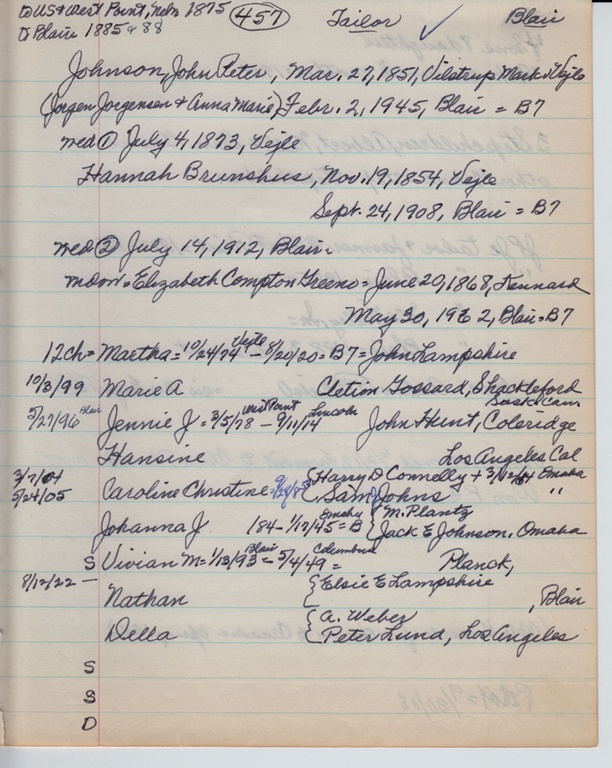 to US & West Point, Nebr 1875 (457) Tailor ✓ Blair
to Blair 1885 & 88
Johnson, John Peter, Mar. 27, 1851, Vilstrup Mark, Vejle
(Jorgen Jorgensen & Anna Marie) Febr. 2, 1945, Blair = B7
wed ① July 4, 1873, Vejle
Hannah Brunshus, Nov. 19, 1854, Vejle
Sept. 24, 1908, Blair = B7
wed ② July 14, 1912, Blair =
Elizabeth Compton Greeno = June 20, 1868, Kennard
May 30, 1962, Blair = B7
12 ch = Martha = 10/24/74 Vejle - 8/20/20 = B7 = John Lampshire
10/3/99 Marie A Cletion Gossard, Shackleford
Sask. Can.
5/27/96 Blair Jennie J = 3/5/78 West Point - 9/11/14 Lincoln John Hunt, Coleridge
Hansine Los Angeles Cal
3/7/04 { Harry D Connelly + Omaha
5/24/05 Caroline Christine { Sam Johns "
Johanna J 184 - 1/17/45 = B Omaha { M. Plantz
{ Jack E Johnson, Omaha
S Vivian M = 1/13/93 Blair - 5/4/49 = Columbus Planck,
8/12/22 — { Elsie E Lampshire
Nathan { , Blair
Della { A. Weber
{ Peter Lund, Los Angeles
S
S
D